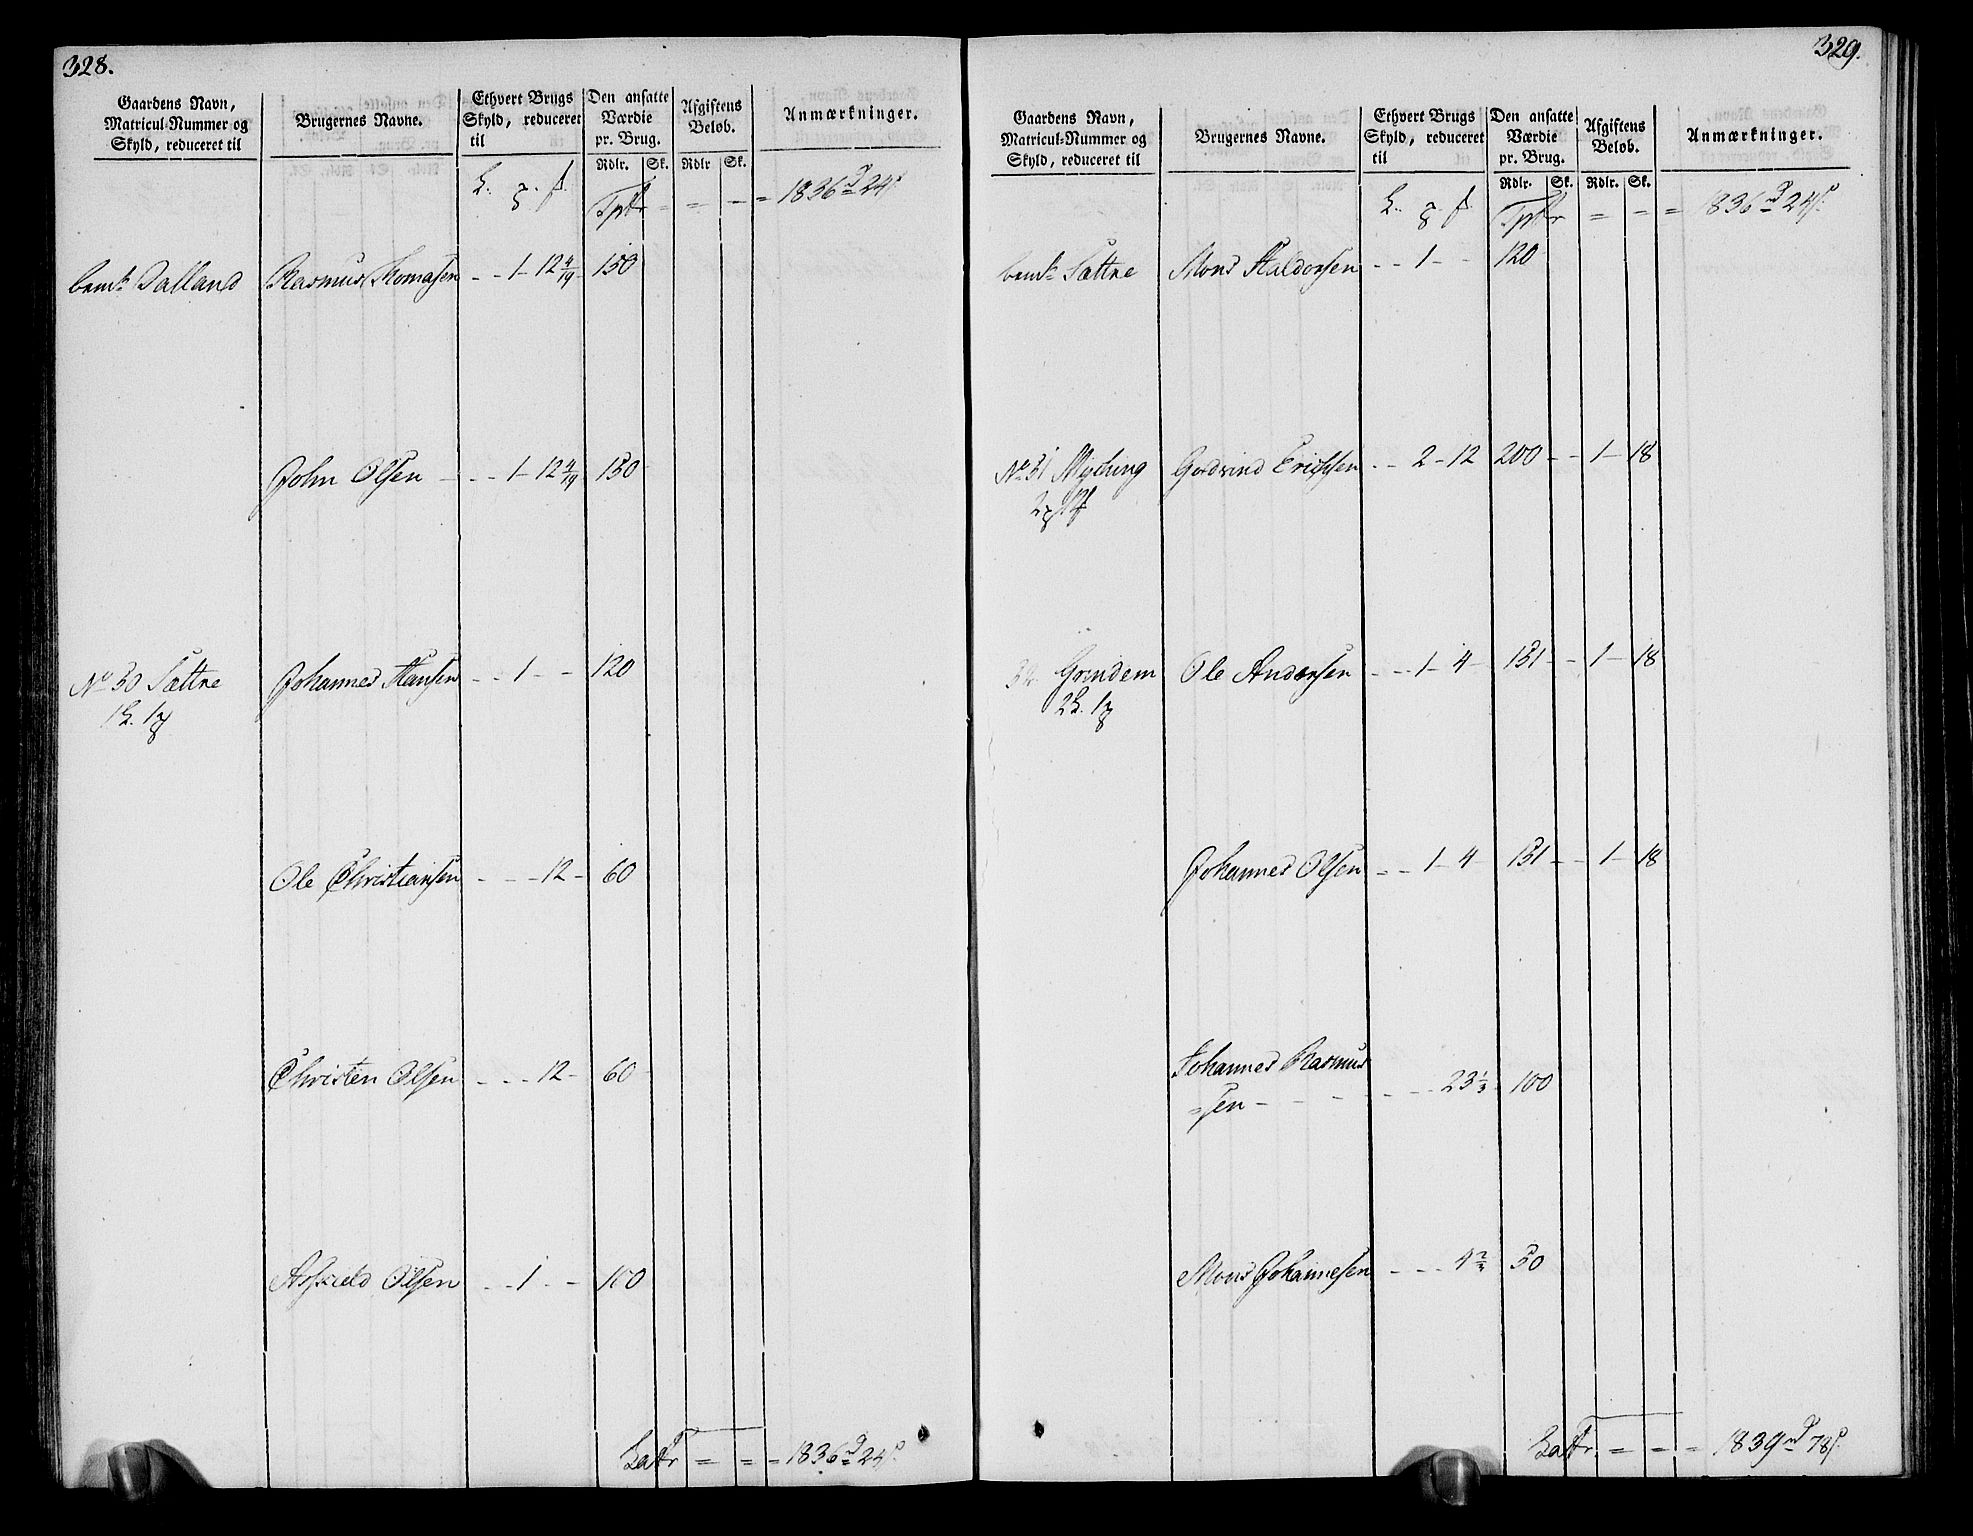 328.
Gaardens Navn, Matricul-Nummer og Skyld, reduceret til
Brugernes Navne.
Ethvert Brugs Skyld, reduceret til
Den ansatte Værdie pr. Brug.
Afgiftens Beløb.
Anmærkninger.
Rdlr. Sk. Rdlr Sk.
Tpkr = = - = 1836 24
Dalland Rasmus Thomasen - - 1 - 12 4/19 - 150
John Olsen - - - 1 - 12 4/19 150
No 50 Sættre Johannes Hansen - - 1 - - 120
Ole Christiansen - - - 12 - 60
Christen Olsen - - - 12 - 60
Olsen - - 1 - - 100
Latr = = = 1836 24
329.
Gaardens Navn, Matricul-Nummer og Skyld, reduceret til
Brugernes Navne.
Ethvert Brugs Skyld, reduceret til
Den ansatte Værdie pr. Brug.
Afgiftens Beløb.
Anmærkninger.
Rdlr. Sk. Rdlr. Sk.
Tpkr = - = 1836 24
Sættre Mons Haldorsen - - 1 - - 120
No 51 Myching Godvind Erichsen - - 2 - 12 200 - - 1 - 18
Grindem Ole Andersen - - 1 - 4 - 151 - - 1 - 18
Johannes Olsen - - 1 - 4 151 - - 1 - 18
Johannes Rasmus
=sen - - - - - 23 1/3 100
Mons Johannesen - - - 4 2/3 50
Latr = = = 1839 78